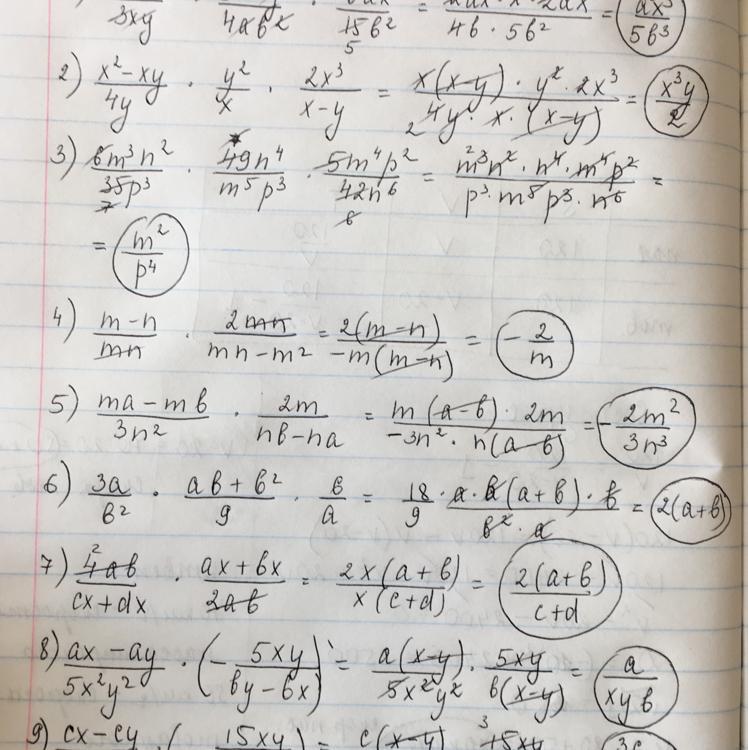 /3xy · /4abx · /15b² 5 = 2ax · x · 2ax/4b · 5b² = ax³/5b³
2) x²-xy/4y · y²/x · 2x³/x-y = x(x-y) · y² · 2x³/2 4y · x · (x-y) = x³y/2
3) 6m³n²/35p³ 7 · 49n⁴/m⁵p³ · 5m⁴p²/42n⁶ 6 = m³ ² n² · n⁴ · m⁴ p²/p³ · m⁵ p³ · n⁶ =
= m²/p⁴
4) m-n/mn · 2mn/mn-m² = 2(m-n)/-m(m-n) = -2/m
5) ma-mb/3n² · 2m/nb-na = m(a-b) · 2m/-3n² · n(a-b) = -2m²/3n³
6) 3a/b² · ab+b²/9 · b/a = 18/9 · a · b(a+b) · b/b² · a = 2(a+b)
7) 2 4ab/cx+dx · ax+bx/2ab = 2x(a+b)/x(c+d) = 2(a+b)/c+d
8) ax-ay/5x²y² · (-5xy/by-bx) = a(x-y)/5x²y² · 5xy/b(x-y) = a/xyb
9) cx-cy · (15xy = c(x-y) 3 15xy = 3c